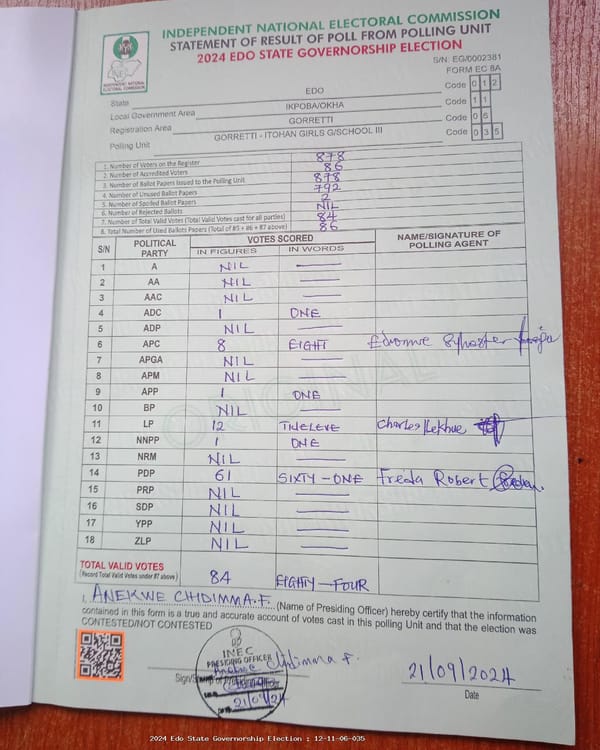 INDEPENDENT NATIONAL ELECTORAL COMMISSION
STATEMENT OF RESULT OF POLL FROM POLLING UNIT
2024 EDO STATE GOVERNORSHIP ELECTION
INDEPENDENT NATIONAL ELECTORAL COMMISSION
S/N: EG/0002381
FORM EC 8A
State EDO Code 0 1 2
Local Government Area IKPOBA/OKHA Code 1 1
Registration Area GORRETTI Code 0 6
Polling Unit GORRETTI - ITOHAN GIRLS G/SCHOOL III Code 0 3 5
1. Number of Voters on the Register 878
2. Number of Accredited Voters 86
3. Number of Ballot Papers Issued to the Polling Unit 878
4. Number of Unused Ballot Papers 792
5. Number of Spoiled Ballot Papers 2
6. Number of Rejected Ballots NIL
7. Number of Total Valid Votes (Total Valid Votes cast for all parties) 84
8. Total Number of Used Ballots Papers (Total of #5 + #6 + #7 above) 86
S/N POLITICAL PARTY VOTES SCORED NAME/SIGNATURE OF POLLING AGENT
IN FIGURES IN WORDS
1 A NIL
2 AA NIL
3 AAC NIL
4 ADC 1 ONE
5 ADP NIL
6 APC 8 EIGHT
7 APGA NIL
8 APM NIL
9 APP 1 ONE
10 BP NIL
11 LP 12 TWELEVE Charles
12 NNPP 1 ONE
13 NRM NIL
14 PDP 61 SIXTY-ONE Freda Robert
15 PRP NIL
16 SDP NIL
17 YPP NIL
18 ZLP NIL
TOTAL VALID VOTES 84 EIGHTY-FOUR
(Record Total Valid Votes under #7 above)
I, ANEKWE CHIDIMMA.F. (Name of Presiding Officer) hereby certify that the information
contained in this form is a true and accurate account of votes cast in this polling Unit and that the election was
CONTESTED/NOT CONTESTED
INEC
PRESIDING OFFICER
Anekwe Chidimma F.
21/09/24
21/09/2024
Date
2024 Edo State Governorship Election : 12-11-06-035